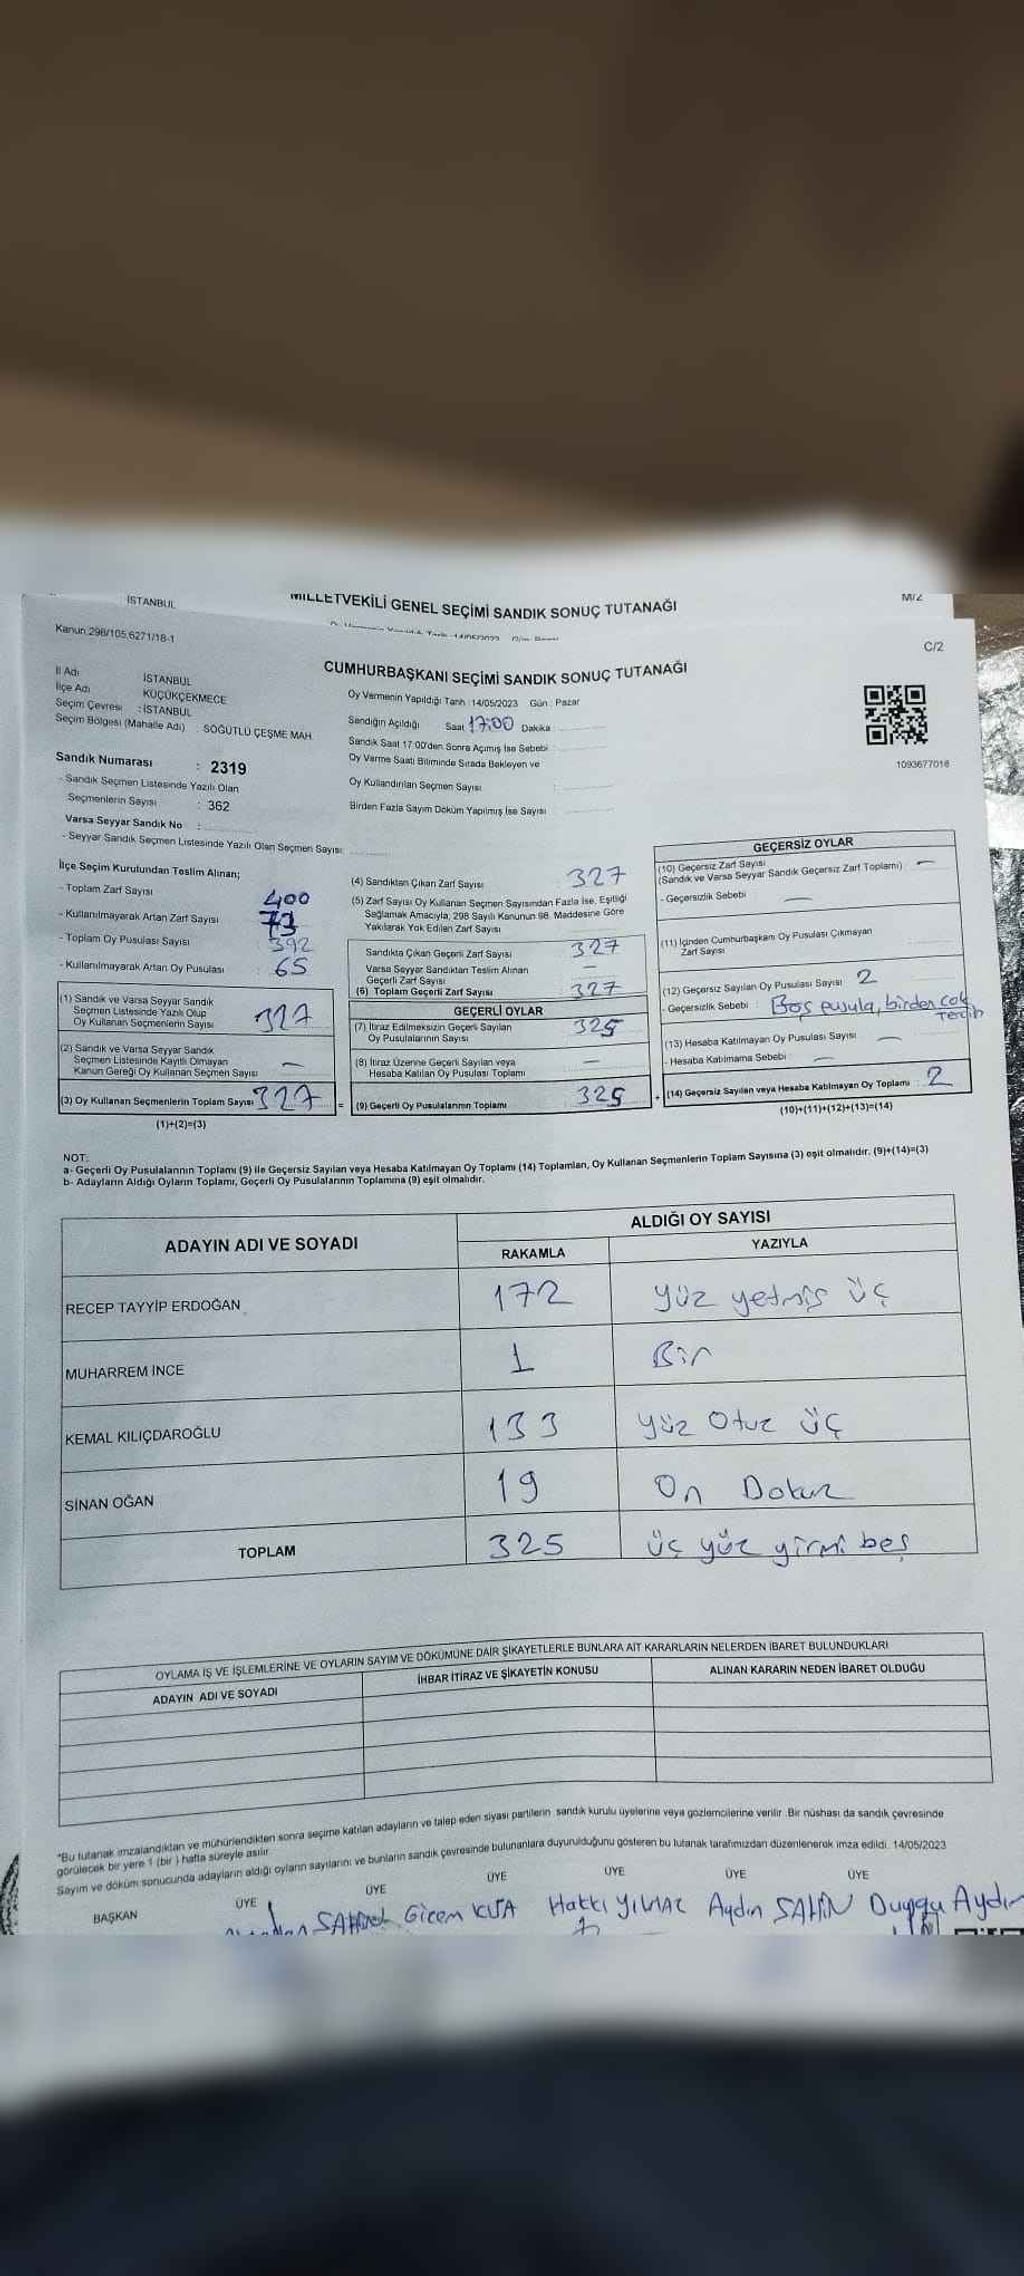 İSTANBUL
MİLLETVEKİLİ GENEL SEÇİMİ SANDIK SONUÇ TUTANAĞI
M/2
Kanun:298/105,6271/18-1
C/2
CUMHURBAŞKANI SEÇİMİ SANDIK SONUÇ TUTANAĞI
İl Adı İSTANBUL
İlçe Adı KÜÇÜKÇEKMECE
Seçim Çevresi : İSTANBUL
Seçim Bölgesi (Mahalle Adı) : SÖĞÜTLÜ ÇEŞME MAH.
Oy Vermenin Yapıldığı Tarih :14/05/2023 Gün : Pazar
Sandığın Açıldığı Saat 17:00 Dakika
Sandık Saat 17:00'den Sonra Açımış İse Sebebi
Oy Verme Saati Bitiminde Sırada Bekleyen ve
Oy Kullandırılan Seçmen Sayısı :
Birden Fazla Sayım Döküm Yapılmış İse Sayısı
1093677016
Sandık Numarası : 2319
- Sandık Seçmen Listesinde Yazılı Olan
Seçmenlerin Sayısı : 362
Varsa Seyyar Sandık No :
- Seyyar Sandık Seçmen Listesinde Yazılı Olan Seçmen Sayısı:
İlçe Seçim Kurulundan Teslim Alınan;
- Toplam Zarf Sayısı 400
- Kullanılmayarak Artan Zarf Sayısı 73
- Toplam Oy Pusulası Sayısı 392
- Kullanılmayarak Artan Oy Pusulası : 65
(1) Sandık ve Varsa Seyyar Sandık
Seçmen Listesinde Yazılı Olup
Oy Kullanan Seçmenlerin Sayısı 327
(2) Sandık ve Varsa Seyyar Sandık
Seçmen Listesinde Kayıtlı Olmayan
Kanun Gereği Oy Kullanan Seçmen Sayısı —
(3) Oy Kullanan Seçmenlerin Toplam Sayısı 327 =
(1)+(2)=(3)
(4) Sandıktan Çıkan Zarf Sayısı 327
(5) Zarf Sayısı Oy Kullanan Seçmen Sayısından Fazla İse, Eşitliği
Sağlamak Amacıyla, 298 Sayılı Kanunun 98. Maddesine Göre
Yakılarak Yok Edilen Zarf Sayısı
Sandıkta Çıkan Geçerli Zarf Sayısı 327
Varsa Seyyar Sandıktan Teslim Alınan
Geçerli Zarf Sayısı —
(6) Toplam Geçerli Zarf Sayısı 327
GEÇERLİ OYLAR
(7) İtiraz Edilmeksizin Geçerli Sayılan
Oy Pusulalarının Sayısı 325
(8) İtiraz Üzerine Geçerli Sayılan veya
Hesaba Katılan Oy Pusulası Toplamı —
(9) Geçerli Oy Pusulalarının Toplamı 325 +
GEÇERSİZ OYLAR
(10) Geçersiz Zarf Sayısı
(Sandık ve Varsa Seyyar Sandık Geçersiz Zarf Toplamı) —
- Geçersizlik Sebebi —
(11) İçinden Cumhurbaşkanı Oy Pusulası Çıkmayan
Zarf Sayısı
(12) Geçersiz Sayılan Oy Pusulası Sayısı 2
- Geçersizlik Sebebi : Boş pusula, birden çok
Tercih
(13) Hesaba Katılmayan Oy Pusulası Sayısı —
- Hesaba Katılmama Sebebi —
(14) Geçersiz Sayılan veya Hesaba Katılmayan Oy Toplamı : 2
(10)+(11)+(12)+(13)=(14)
NOT:
a- Geçerli Oy Pusulalarının Toplamı (9) ile Geçersiz Sayılan veya Hesaba Katılmayan Oy Toplamı (14) Toplamları, Oy Kullanan Seçmenlerin Toplam Sayısına (3) eşit olmalıdır. (9)+(14)=(3)
b- Adayların Aldığı Oyların Toplamı, Geçerli Oy Pusulalarının Toplamına (9) eşit olmalıdır.
ADAYIN ADI VE SOYADI
ALDIĞI OY SAYISI
RAKAMLA YAZIYLA
RECEP TAYYİP ERDOĞAN 172 yüz yetmiş üç
MUHARREM İNCE 1 Bir
KEMAL KILIÇDAROĞLU 133 yüz Otuz üç
SİNAN OĞAN 19 On Dokuz
TOPLAM 325 üç yüz yirmi beş
OYLAMA İŞ VE İŞLEMLERİNE VE OYLARIN SAYIM VE DÖKÜMÜNE DAİR ŞİKAYETLERLE BUNLARA AİT KARARLARIN NELERDEN İBARET BULUNDUKLARI
ADAYIN ADI VE SOYADI İHBAR İTİRAZ VE ŞİKAYETİN KONUSU ALINAN KARARIN NEDEN İBARET OLDUĞU
*Bu tutanak imzalandıktan ve mühürlendikten sonra seçime katılan adayların ve talep eden siyası partilerin sandık kurulu üyelerine veya gözlemcilerine verilir. Bir nüshası da sandık çevresinde
görülecek bir yere 1 (bir ) hafta süreyle asılır.
Sayım ve döküm sonucunda adayların aldığı oyların sayılarını ve bunların sandık çevresinde bulunanlara duyurulduğunu gösteren bu tutanak tarafımızdan düzenlenerek imza edildi. 14/05/2023
BAŞKAN ÜYE ÜYE ÜYE ÜYE ÜYE ÜYE
Gizem Hakkı YILMAZ Aydın ŞAHİN Duygu Aydın